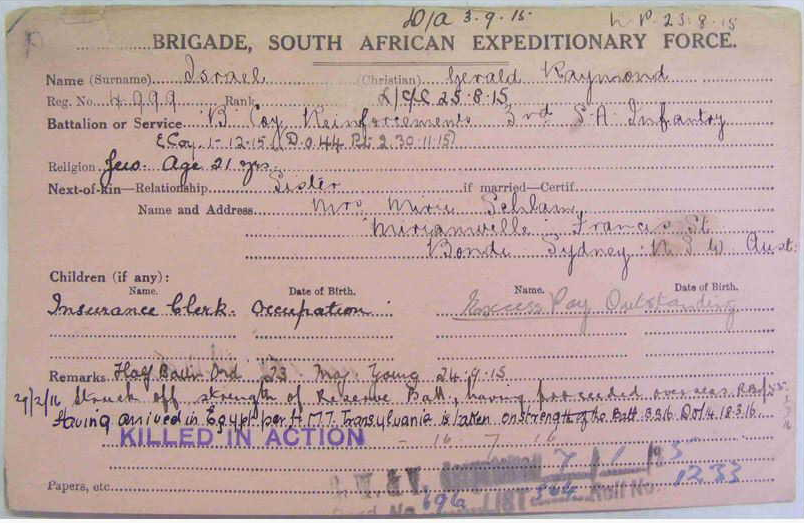 D/A 3.9.15. 23.8.15
BRIGADE, SOUTH AFRICAN EXPEDITIONARY FORCE.
Name (Surname) Israel (Christian) Gerald Raymond
Reg. No. 4099 Rank L/C/C 25.8.15
Battalion or Service B Coy Reinforcements 3rd S.A. Infantry
E Coy 1-12-15 (D.O 44 Pt 2. 30.11.15)
Religion Jew. Age 21 yrs.
Next-of-kin—Relationship Sister if married—Certif.
Name and Address Mrs Mirie Schlam,
Miriamville Francis St
Bondi Sydney. N S W Aust:
Children (if any):
Name. Date of Birth. Name. Date of Birth.
Insurance Clerk. Occupation Excess Pay Outstanding
Remarks Half Battn Ord 23 Maj. Young 24.9.15
29/2/16 Struck off strength of Reserve Batt, having proceeded overseas
Having arrived in Egypt per H.M.T. Transylvania is taken on strength of the Batt 3316 DO/4 18.3.16
KILLED IN ACTION - 16 7 16
7/1
Papers, etc. 696 LIST 344 Roll No. 1233